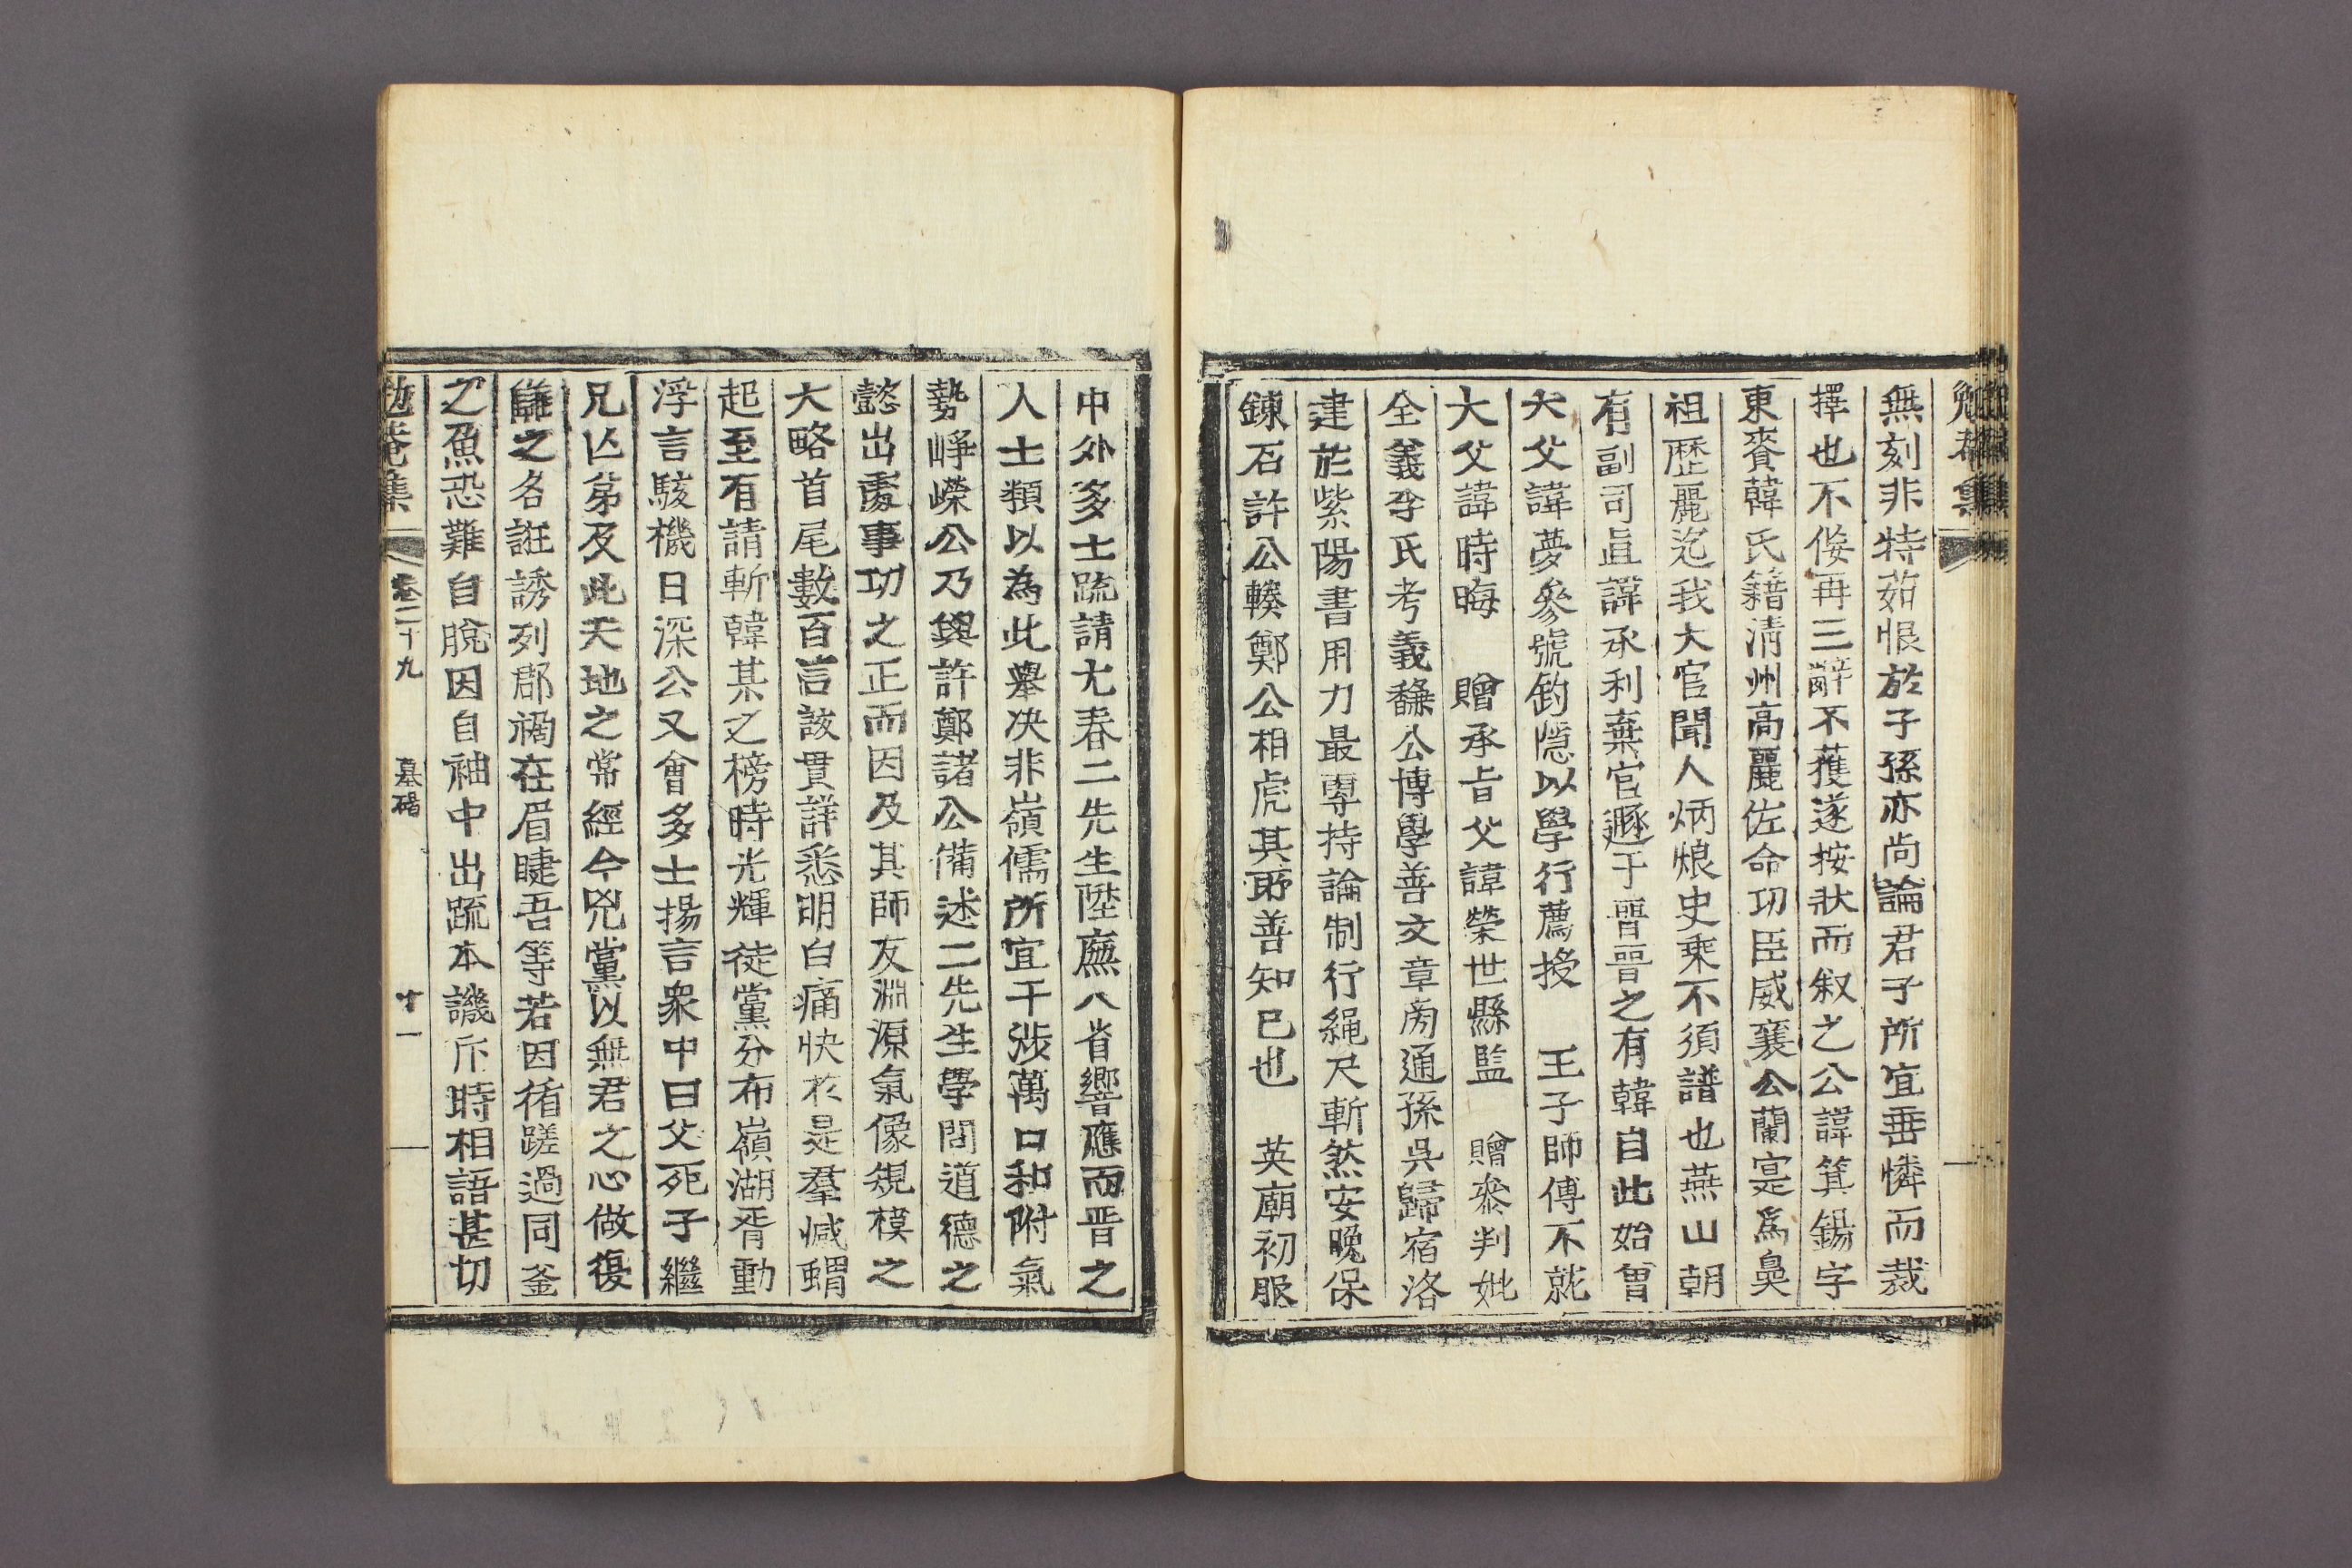 勉菴集
無刻非特茹恨於子孫亦尚論君子所宜垂憐而裁
擇也不佞再三辭不獲遂按狀而叙之公諱箕錫字
東賚韓氏籍淸州高麗佐命功臣威襄公蘭寔爲鼻
祖歷麗迄我大官聞人炳烺史乘不須譜也燕山朝
有副司直諱承利棄官遯于晋晋之有韓自此始曾
大父諱夢參號釣隱以學行薦授　王子師傅不就
大父諱時晦　贈承旨父諱榮世縣監　贈叅判妣
全義李氏考義馦公博學善文章旁通孫吳歸宿洛
建於紫陽書用力最專持論制行繩尺斬然安晩保
鍊石許公轃鄭公相虎其所善知已也　英廟初服
中外多士疏請尤春二先生陞廡八省響應而晋之
人士類以為此擧决非嶺儒所宜干涉萬口和附氣
勢崢嶸公乃與許鄭諸公備述二先生學問道德之
懿出處事功之正而因及其師友淵源氣像規模之
大略首尾數百言該貫詳悉明白痛快於是羣慽蝟
起至有請斬韓某之榜時光輝徒黨分布嶺湖胥動
浮言駭機日深公又會多士揚言衆中曰父死子繼
兄亾弟及此天地之常經今兇黨以無君之心做復
讎之名誑誘列郡禍在眉睫吾等若因循蹉過同釜
之魚恐難自脫因自袖中出疏本譏斥時相語甚切
勉菴集　卷二十九　墓碣　十一